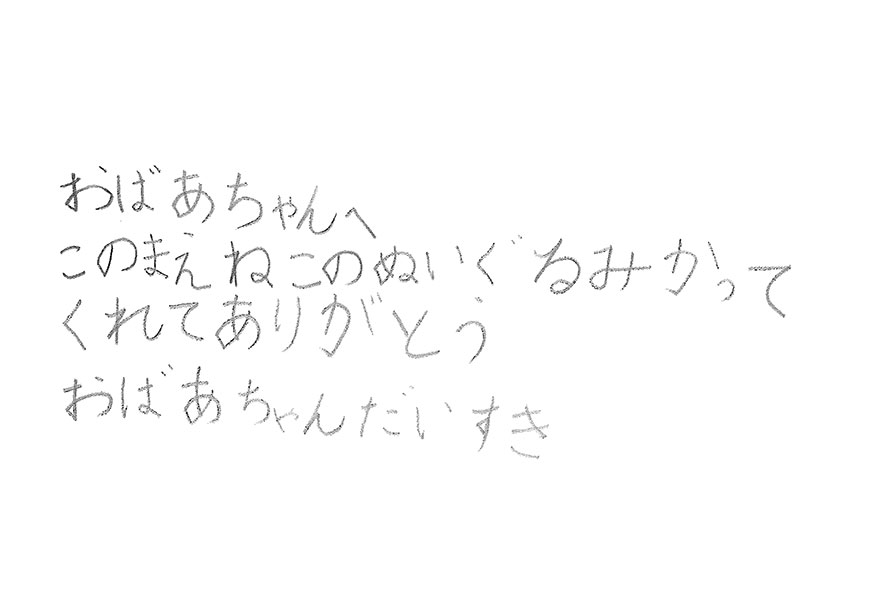 おばあちゃんへ
このまえねこのぬいぐるみかって
くれてありがとう
おばあちゃんだいすき